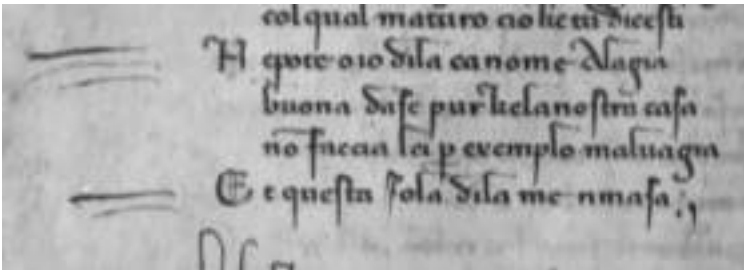 col qual maturo cio licui dicesti
N epote o io dila ca nome Alagia
buona dase pur chela nostra casa
nō faccia lei p exemplo maluagia
E t questa sola dila me rimasa